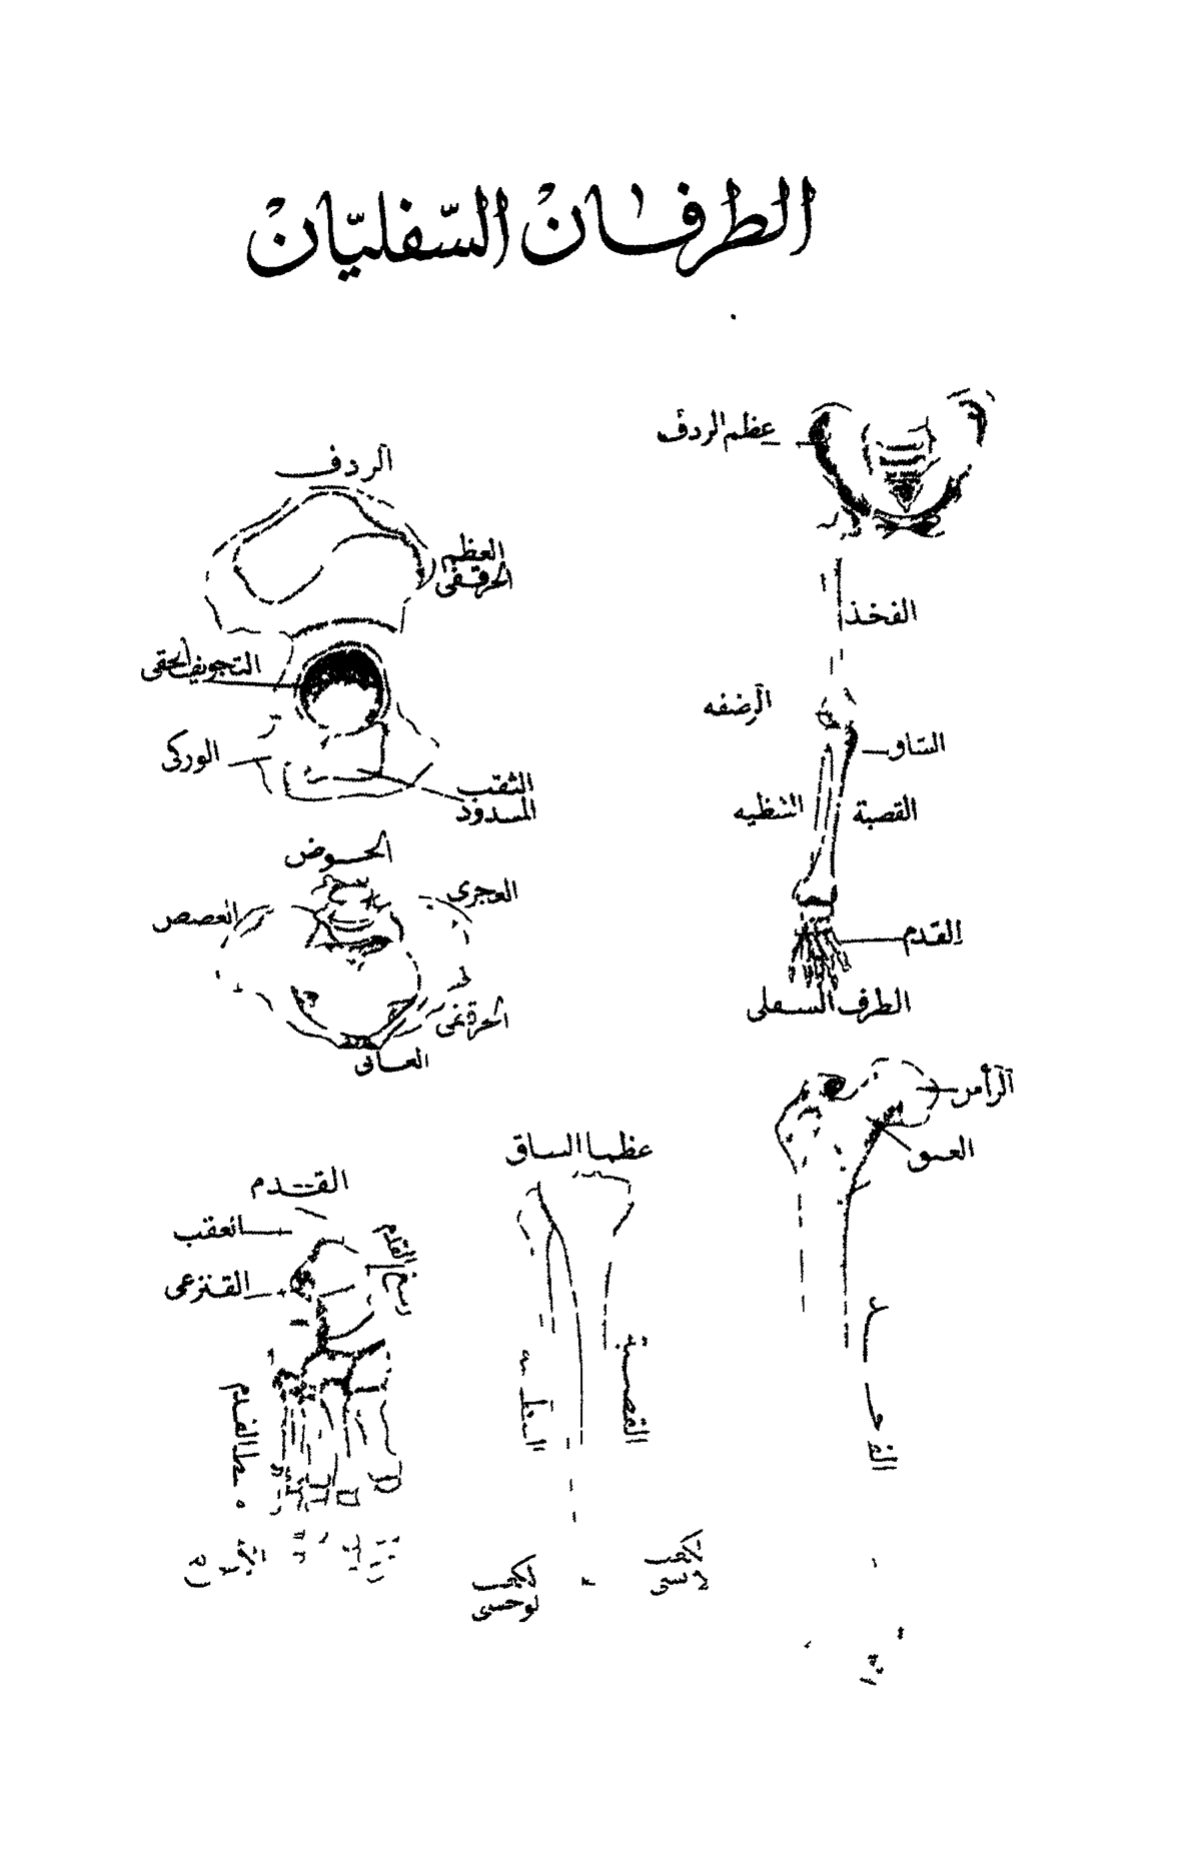 الطرفان السّفليّان
عظم الردف
الفخذ
الرضفه
الساق
القصبة
الشظيه
القدم
الطرف السفلى
الردف
العظم
الحرقفى
التجويف الحقى
الوركى
الثقب
المسدود
الحوض
العجزى
العصعص
الحرقفى
العانى
الرأس
العنق
عظما الساق
القصبة
القدم
العقب
القنزعى
رسغ القدم